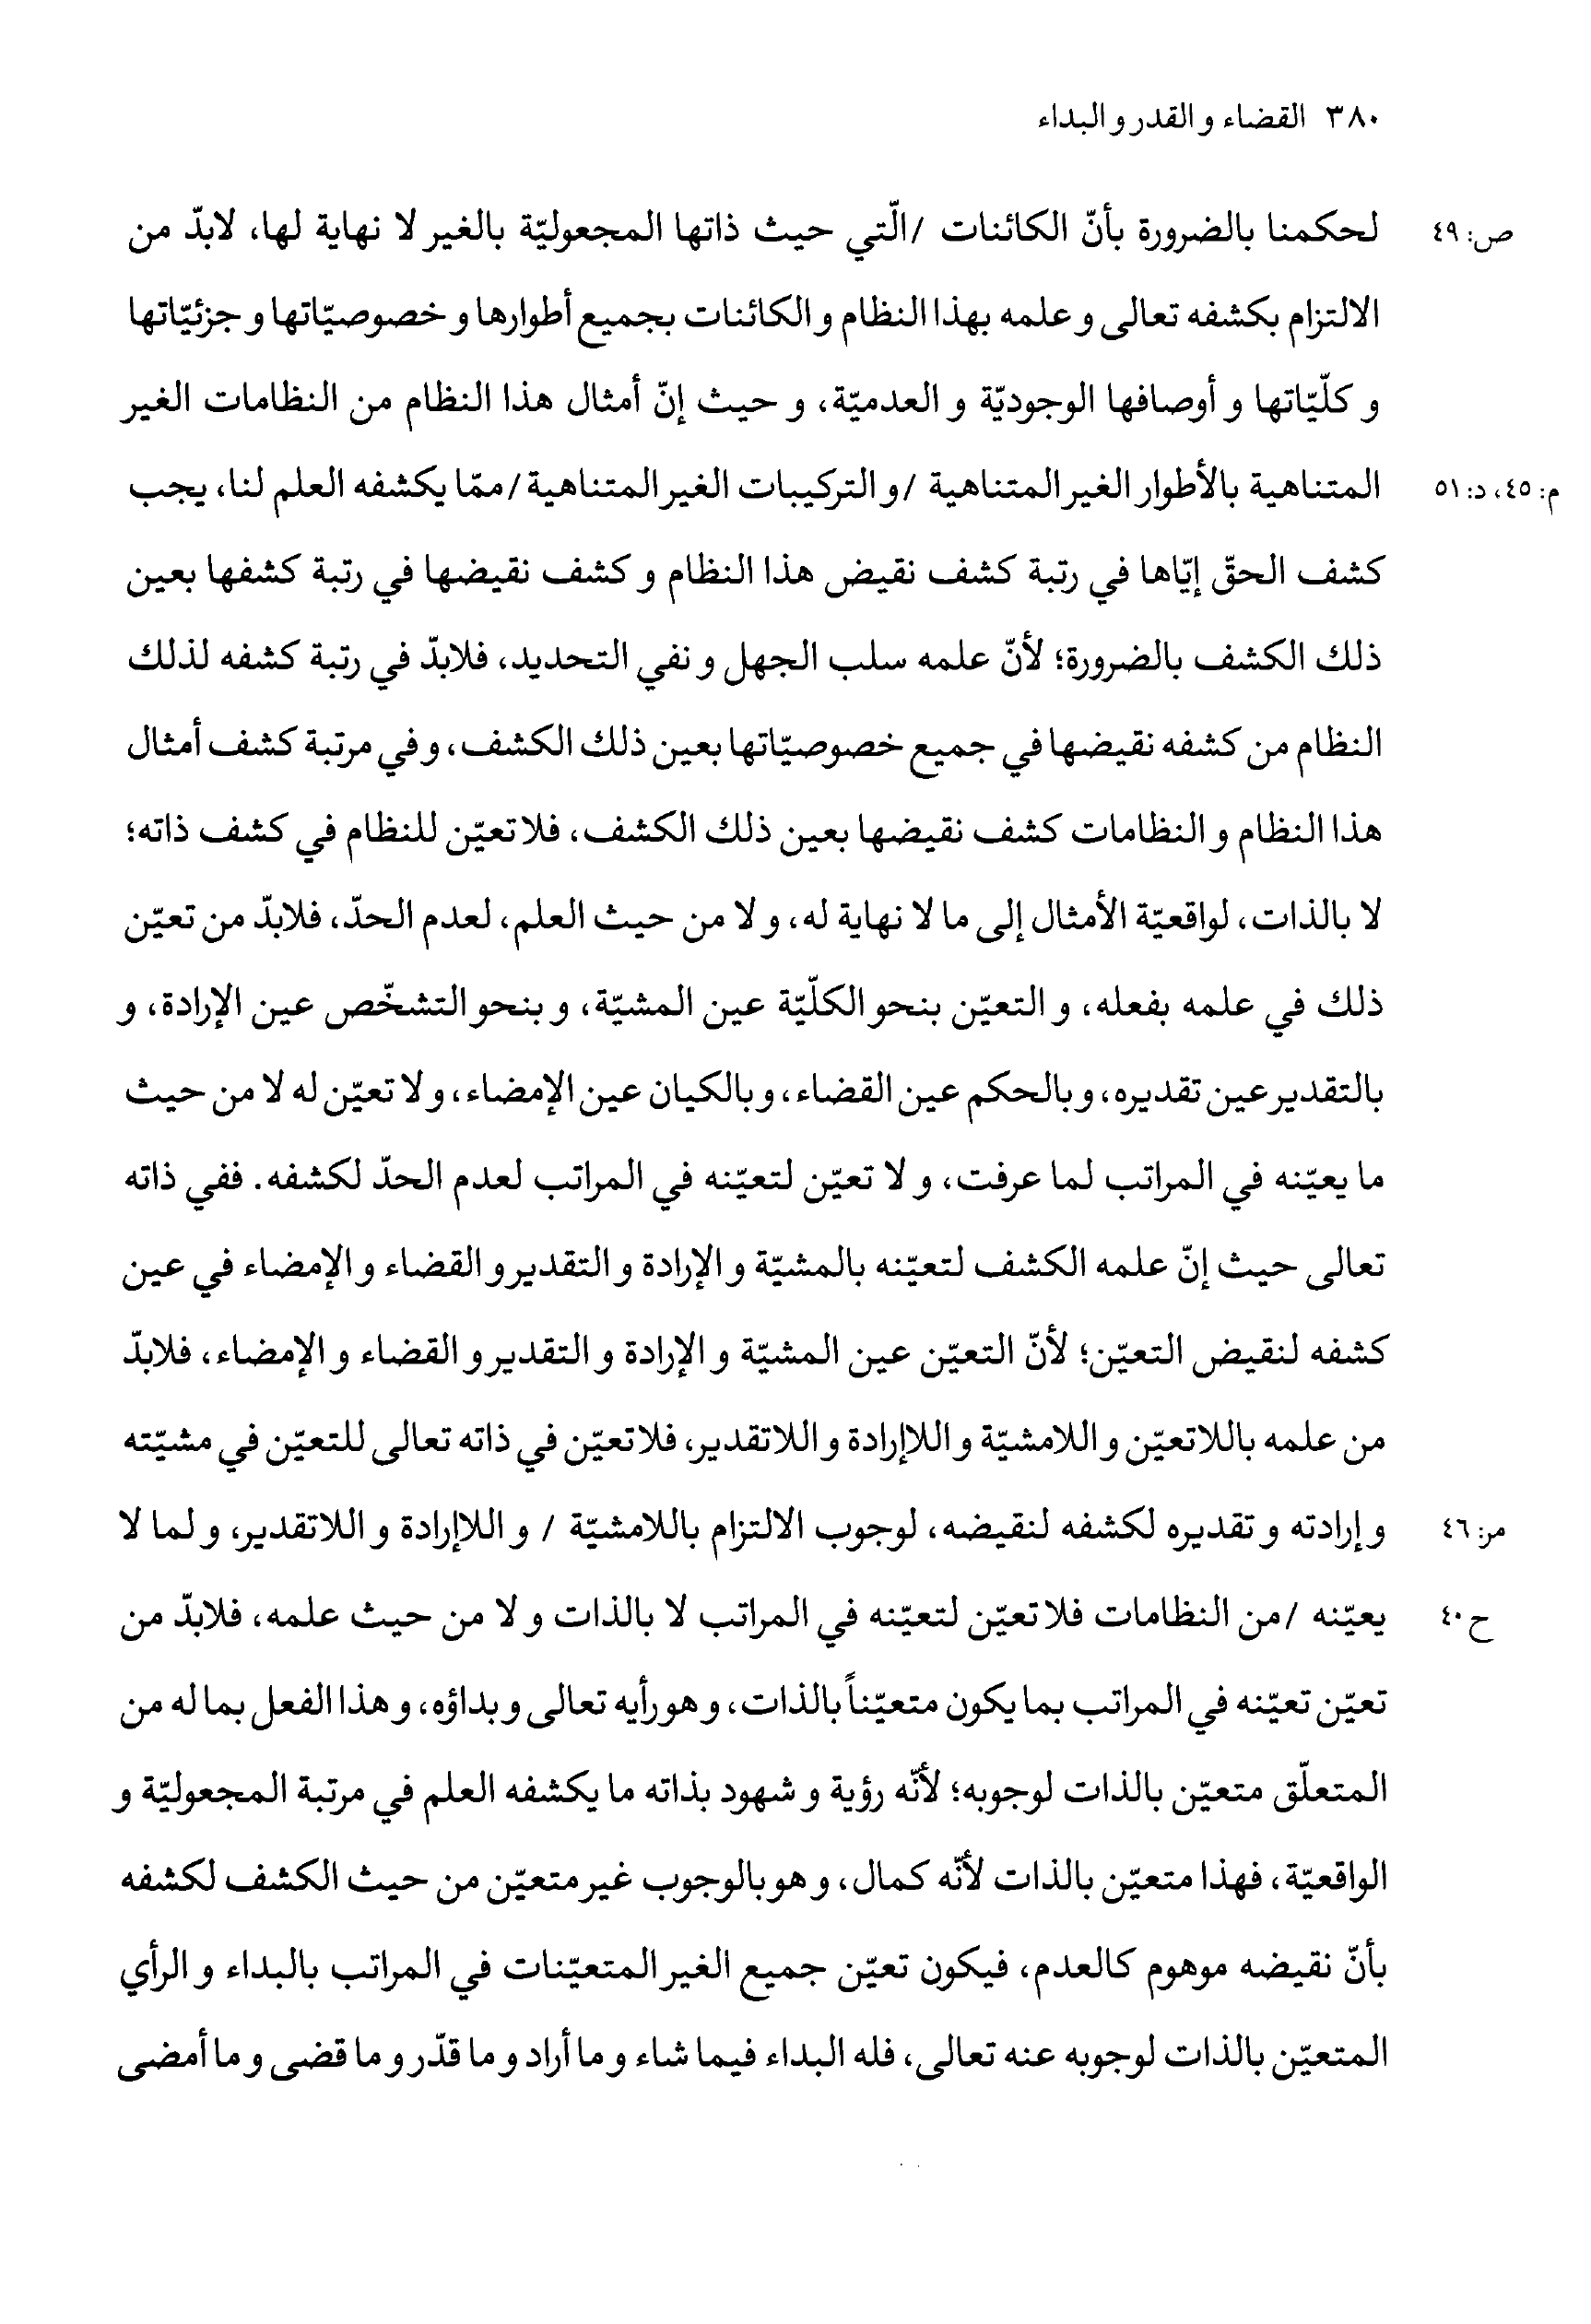 ٣٨٠ القضاء و القدر و البداء
ص: ٤٩ لحكمنا بالضرورة بأنّ الكائنات /الّتي حيث ذاتها المجعوليّة بالغير لا نهاية لها، لابدّ من
الالتزام بكشفه تعالى و علمه بهذا النظام و الكائنات بجميع أطوارها و خصوصيّاتها و جزئيّاتها
و كلّيّاتها و أوصافها الوجوديّة و العدميّة، و حيث إنّ أمثال هذا النظام من النظامات الغير
م: ٤٥، د: ٥١ المتناهية بالأطوار الغير المتناهية /و التركيبات الغير المتناهية/ ممّا يكشفه العلم لنا، يجب
كشف الحقّ إيّاها في رتبة كشف نقيض هذا النظام و كشف نقيضها في رتبة كشفها بعين
ذلك الكشف بالضرورة؛ لأنّ علمه سلب الجهل و نفي التحديد، فلابدّ في رتبة كشفه لذلك
النظام من كشفه نقيضها في جميع خصوصيّاتها بعين ذلك الكشف، و في مرتبة كشف أمثال
هذا النظام و النظامات كشف نقيضها بعين ذلك الكشف، فلا تعيّن للنظام في كشف ذاته؛
لا بالذات، لواقعيّة الأمثال إلى ما لا نهاية له، و لا من حيث العلم، لعدم الحدّ، فلابدّ من تعيّن
ذلك في علمه بفعله، و التعيّن بنحو الكلّيّة عين المشيّة، و بنحو التشخّص عين الإرادة، و
بالتقدير عين تقديره، و بالحكم عين القضاء، و بالكيان عين الإمضاء، و لا تعيّن له لا من حيث
ما يعيّنه في المراتب لما عرفت، و لا تعيّن لتعيّنه في المراتب لعدم الحدّ لكشفه. ففي ذاته
تعالى حيث إنّ علمه الكشف لتعيّنه بالمشيّة و الإرادة و التقدير و القضاء و الإمضاء في عين
كشفه لنقيض التعيّن؛ لأنّ التعيّن عين المشيّة و الإرادة و التقدير و القضاء و الإمضاء، فلابدّ
من علمه باللاتعيّن و اللامشيّة و اللاإرادة و اللاتقدير، فلا تعيّن في ذاته تعالى للتعيّن في مشيّته
مر: ٤٦ و إرادته و تقديره لكشفه لنقيضه، لوجوب الالتزام باللامشيّة / و اللاإرادة و اللاتقدير، و لما لا
ح ٤٠ يعيّنه /من النظامات فلا تعيّن لتعيّنه في المراتب لا بالذات و لا من حيث علمه، فلابدّ من
تعيّن تعيّنه في المراتب بما يكون متعيّناً بالذات، و هو رأيه تعالى و بداؤه، و هذا الفعل بما له من
المتعلّق متعيّن بالذات لوجوبه؛ لأنّه رؤية و شهود بذاته ما يكشفه العلم في مرتبة المجعوليّة و
الواقعيّة، فهذا متعيّن بالذات لأنّه كمال، و هو بالوجوب غير متعيّن من حيث الكشف لكشفه
بأنّ نقيضه موهوم كالعدم، فيكون تعيّن جميع الغير المتعيّنات في المراتب بالبداء و الرأي
المتعيّن بالذات لوجوبه عنه تعالى، فله البداء فيما شاء و ما أراد و ما قدّر و ما قضى و ما أمضى